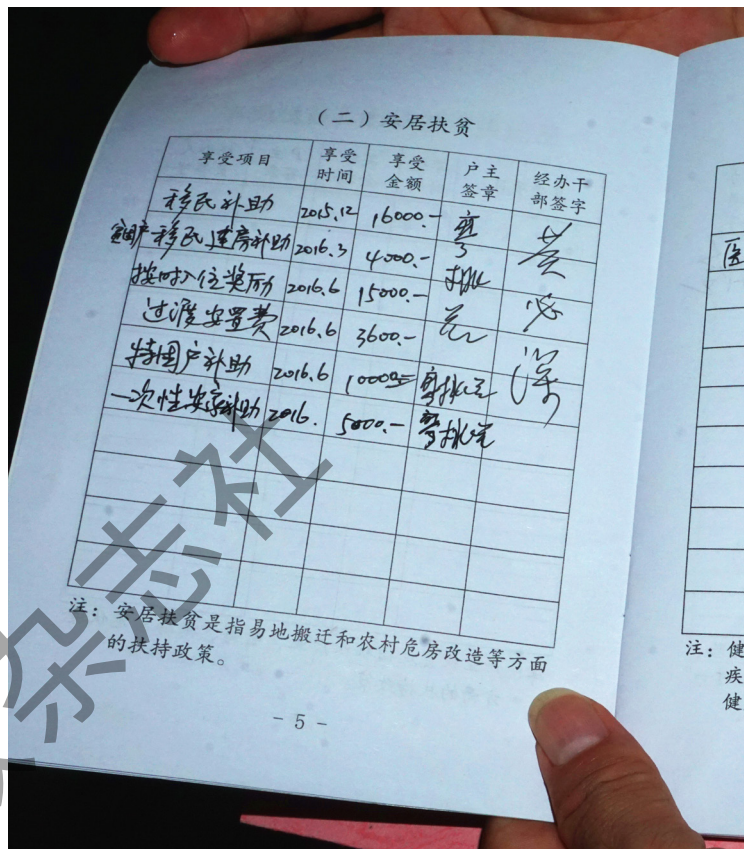 （二）安居扶贫
享受项目 享受时间 享受金额 户主签章 经办干部签字
移民补助 2015.12 16000.-
移民建房补助 2016.3 4000.-
按时入住奖励 2016.6 15000.-
过渡安置费 2016.6 3600.-
特困户补助 2016.6 10000.-
一次性安家补助 2016. 5000.-
注：安居扶贫是指易地搬迁和农村危房改造等方面
的扶持政策。
- 5 -
医
注：健
疾
健
杂志社